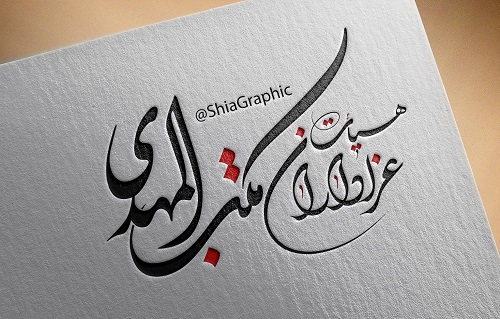 @ShiaGraphic
هیأت
عزاداران
مکتب المهدی